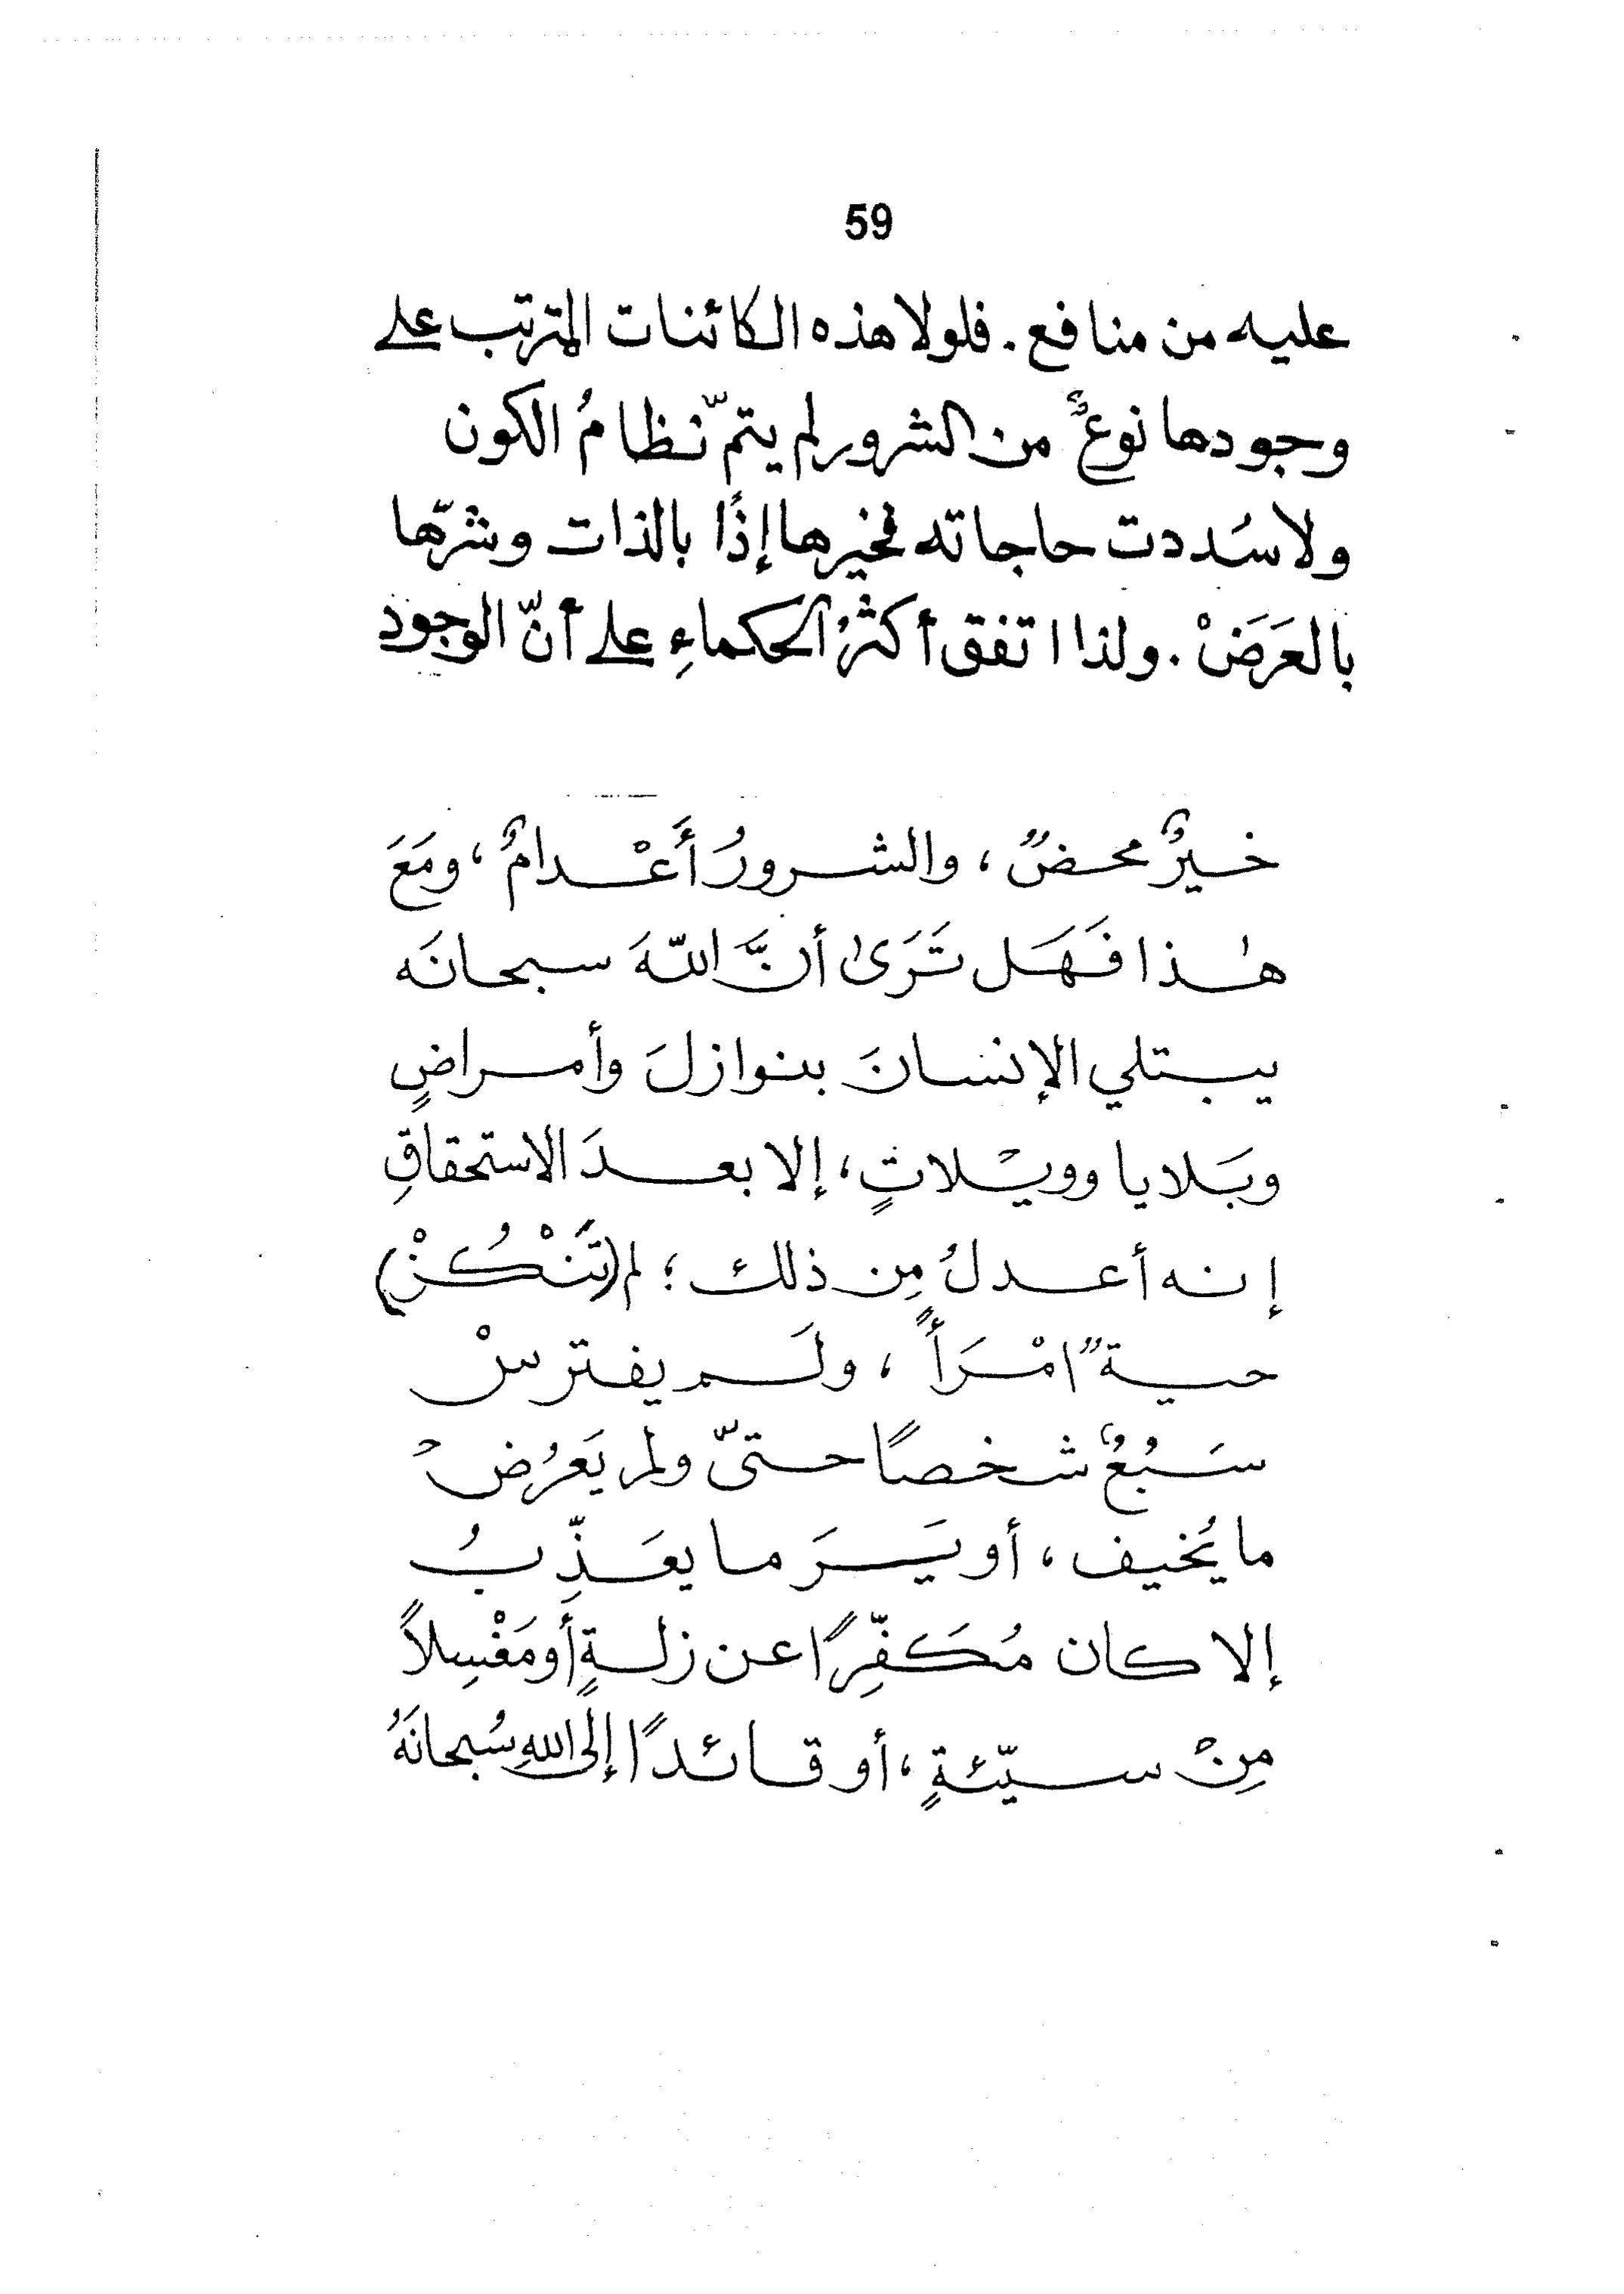 59
عليه من منافع . فلولا هذه الكائنات المترتب على
وجودها نوعٌ من الشرور لم يتمّ نظامُ الكون
ولا سُددت حاجاته فخيرها إذًا بالذات وشرّها
بالعَرَضْ . ولذا اتفق أكثرُ الحكماءِ على أنّ الوجود
خيرٌ محضٌ ، والشرورُ أَعْدامٌ ، ومَعَ
هٰذا فَهَل تَرَىٰ أنَّ اللّهَ سبحانَه
يبتلي الإنسانَ بنوازلَ وأمراضٍ
وبَلايا وويْلاتٍ ، إلا بعدَ الاستحقاقِ
إنه أعدلُ مِن ذلك ؛ لم (تَنْكُزْ)
حيةٌ امْرَأً ، ولَم يفترسْ
سَبُعٌ شخصًا حتىّ ولم يَعرُضْ
ما يُخيف ، أو يَسَرَ ما يعَذِّبُ
إلا كان مُكَفِّرًا عن زلةٍ أو مَغْسِلاً
مِنْ سيّئةٍ ، أو قائدًا إلى اللهِ سُبحانَهُ